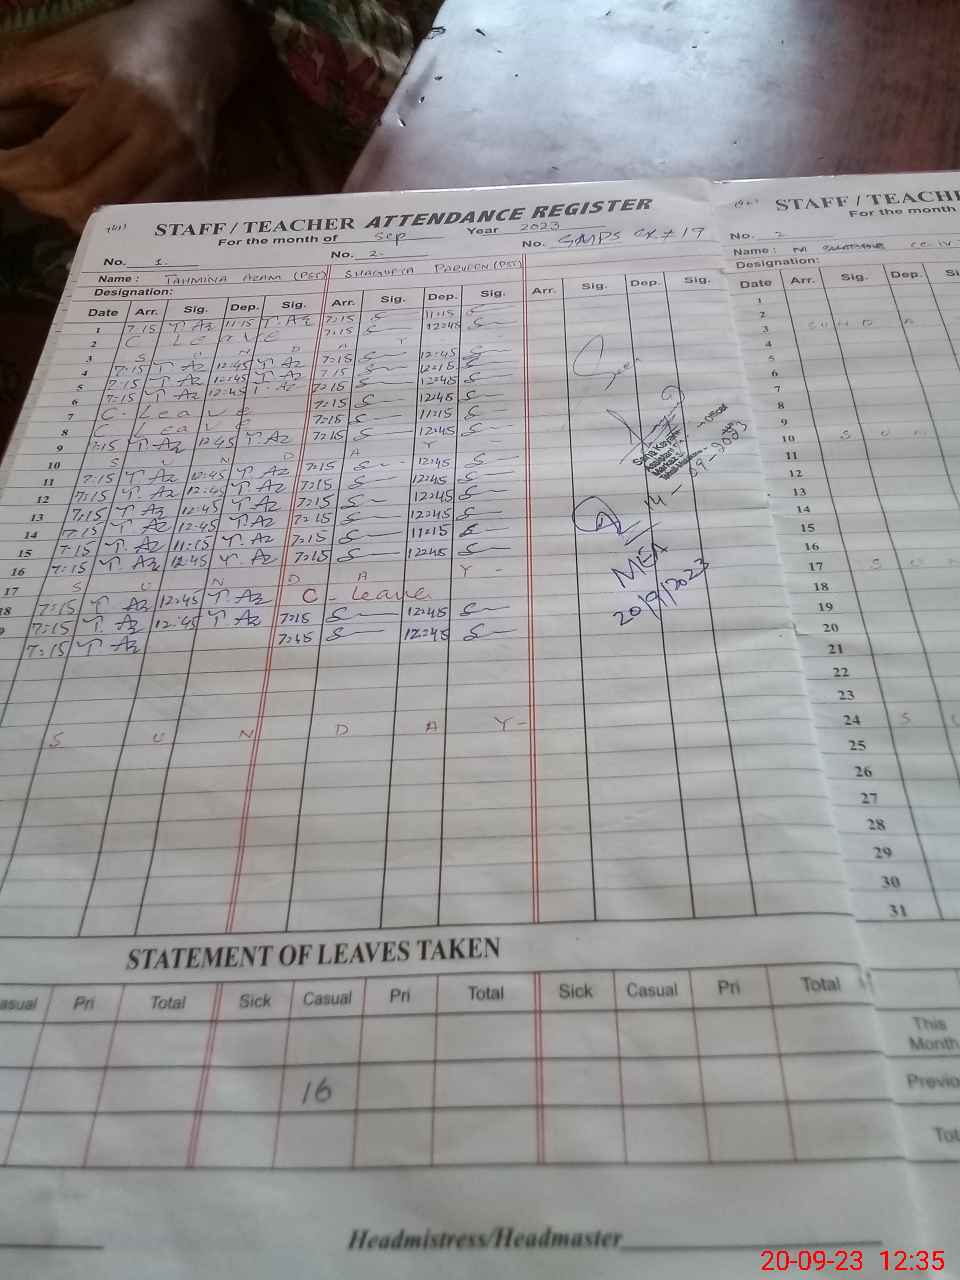 STAFF / TEACHER ATTENDANCE REGISTER
For the month of Sep Year 2023
No. 1. No. 2. No. GMPS
Name : TAHMINA AZAM (PST) SHAGUFTA PARVEEN (PST)
Designation:
Date Arr. Sig. Dep. Sig. Arr. Sig. Dep. Sig. Arr. Sig. Dep. Sig.
1 7:15 T.Az 11:15 T.Az 7:15 11:15
2 C Leave 7:15 12:45
3 S U N D A Y
4 7:15 T.Az 12:45 T.Az 7:15 12:45
5 7:15 T.Az 12:45 T.Az 7:15 12:45
6 7:15 T.Az 12:45 T.Az 7:15 12:45
7 C. Leave 7:15 12:45
8 C Leave 7:15 11:15
9 7:15 T.Az 12:45 T.Az 7:15 12:45
10 S U N D A Y
11 7:15 T.Az 12:45 T.Az 7:15 12:45
12 7:15 T.Az 12:45 T.Az 7:15 12:45
13 7:15 T.Az 12:45 T.Az 7:15 12:45
14 7:15 T.Az 12:45 T.Az 7:15 12:45
15 7:15 T.Az 11:15 T.Az 7:15 11:15
16 7:15 T.Az 12:45 T.Az 7:15 12:45
17 S U N D A Y -
18 7:15 T.Az 12:45 T.Az C - Leave
7:15 T.Az 12:45 T.Az 7:15 12:45
7:15 T.Az 7:45 12:45
S U N D A Y -
Seen
09-2023
MEA
20/9/2023
STATEMENT OF LEAVES TAKEN
asual Pri Total Sick Casual Pri Total Sick Casual Pri Total
16
Headmistress/Headmaster
STAFF / TEACHE
For the month
No. 2
Name :
Designation:
Date Arr. Sig. Dep. Si
1
2
3 S U N D A
4
5
6
7
8
9
10 S U N
11
12
13
14
15
16
17 S U N
18
19
20
21
22
23
24 S U
25
26
27
28
29
30
31
This
Month
Previo
Tot
20-09-23 12:35